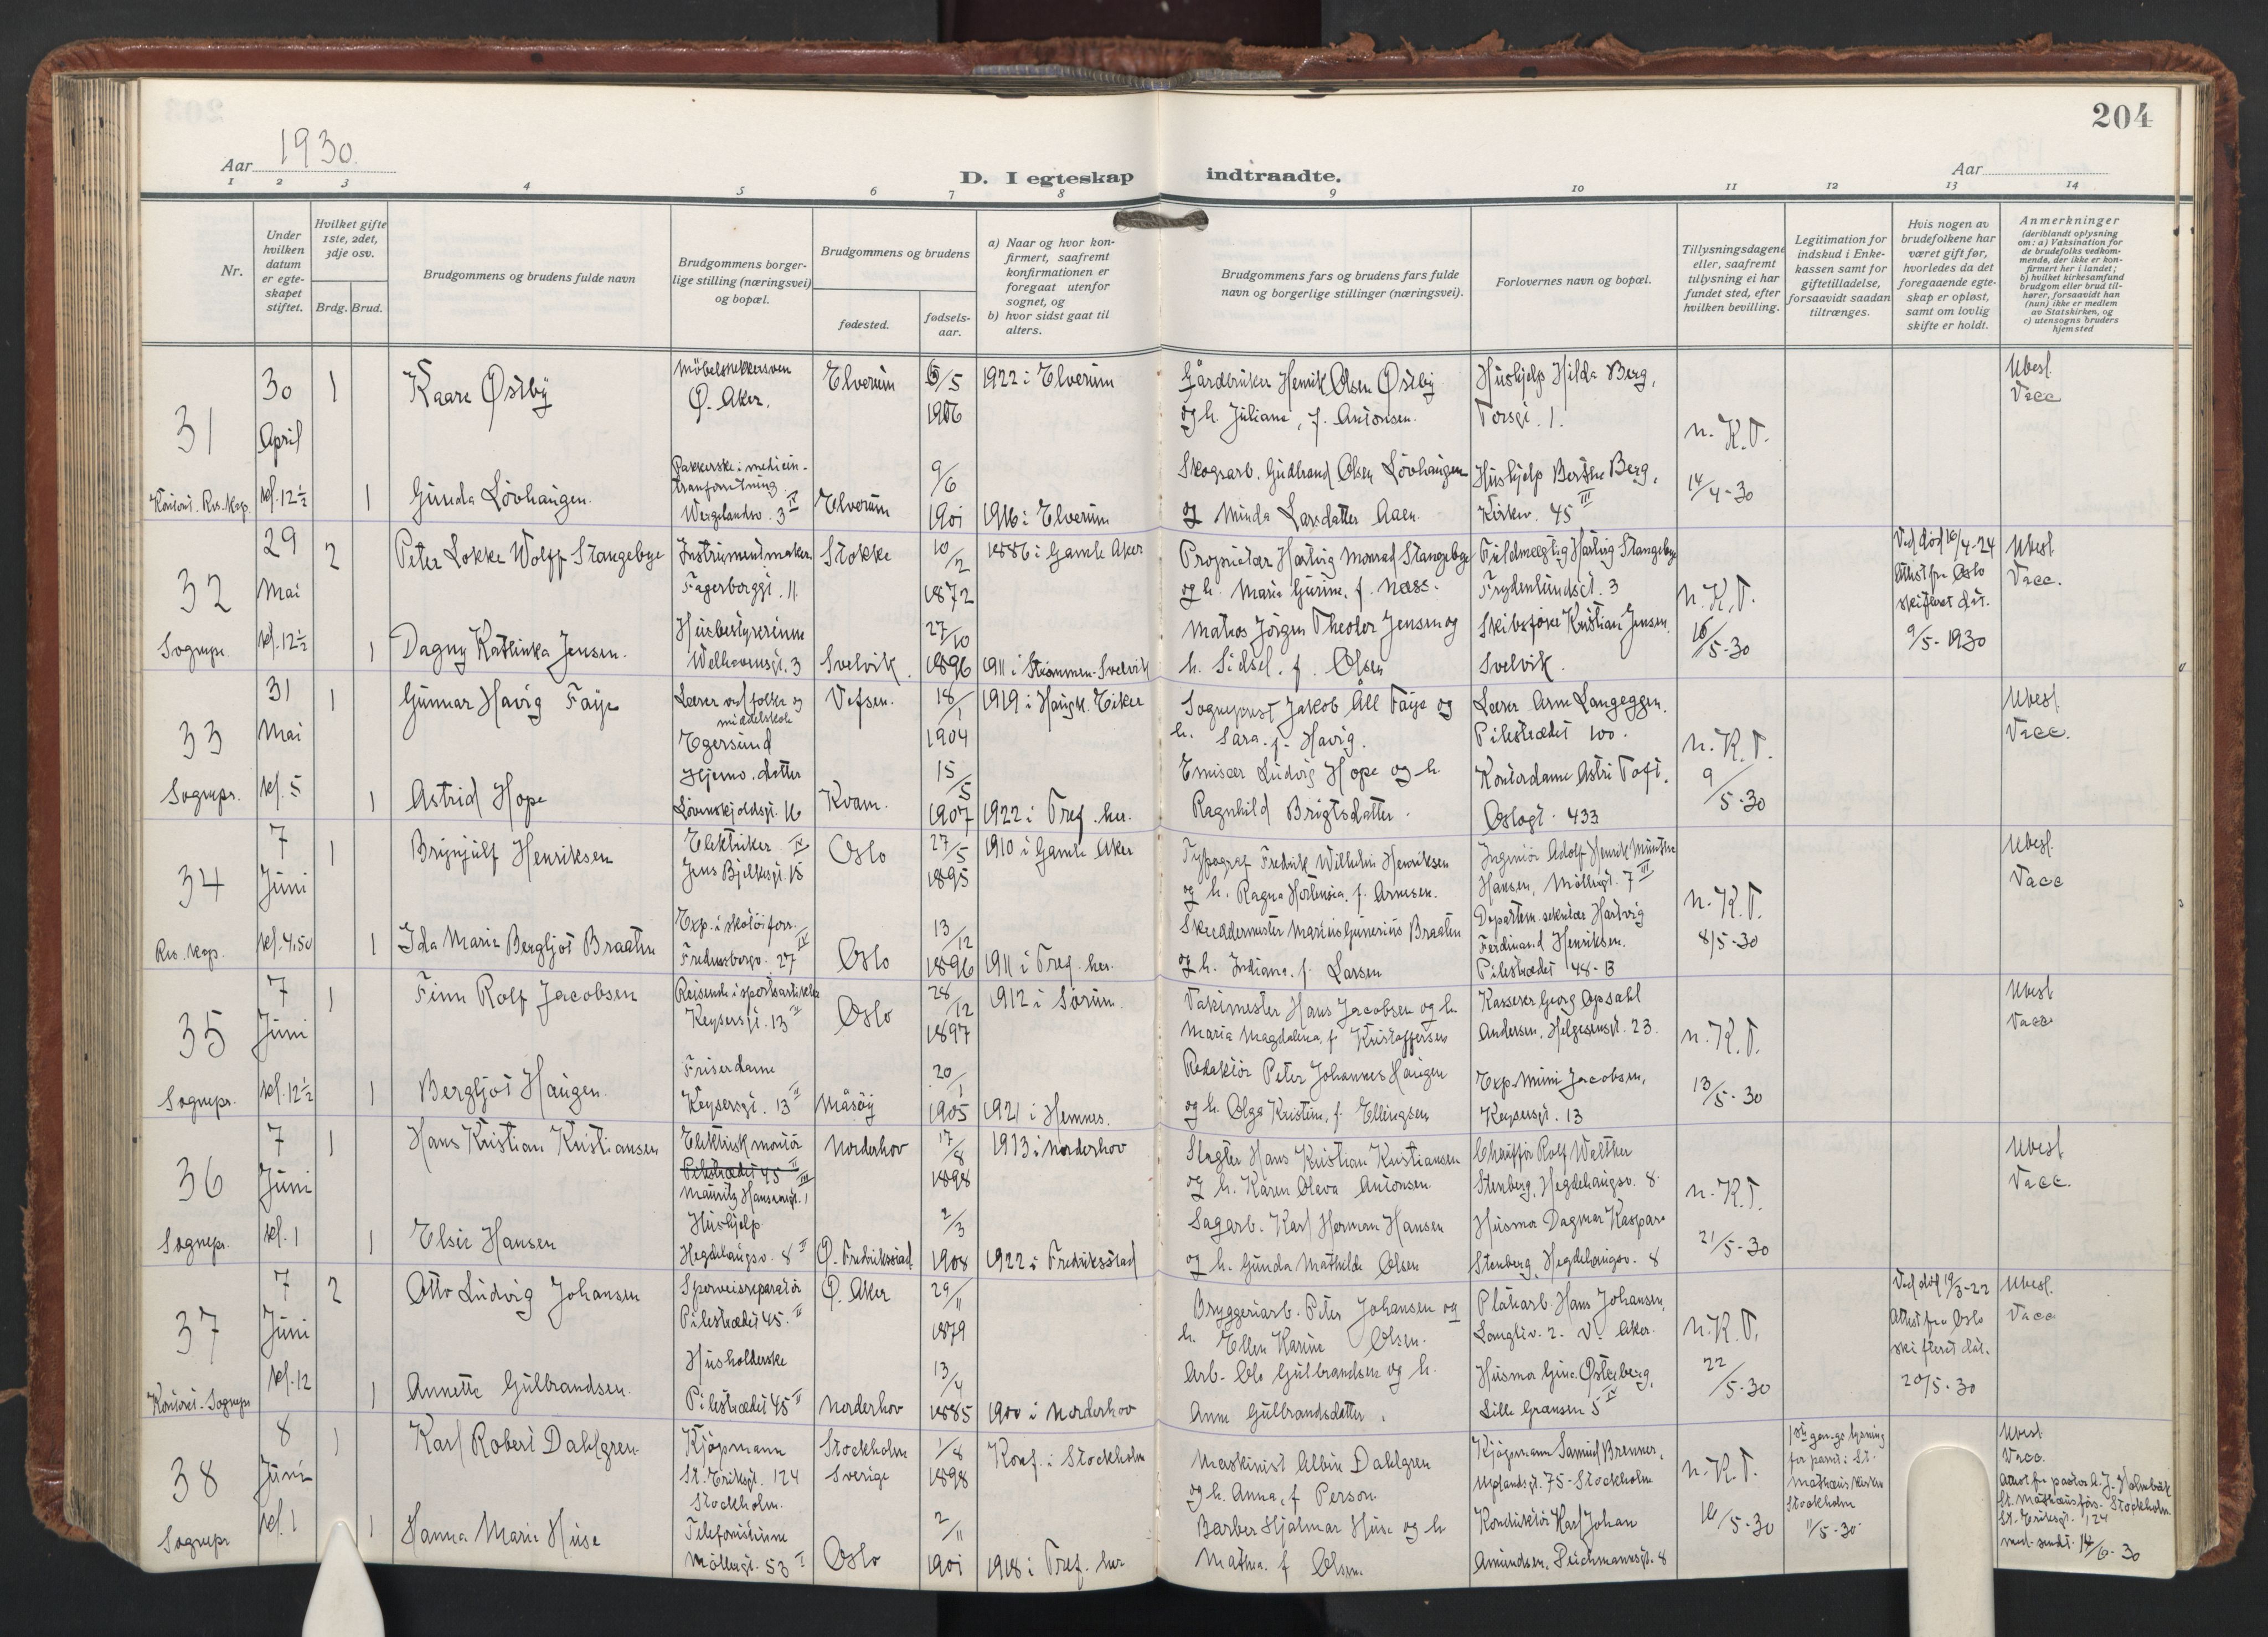 204
Aar 1930.
D. I egteskap indtraadte.
Aar
1 2 3 4 5 6 7 8 9 10 11 12 13 14
Nr.
Under hvilken datum er egteskapet stiftet.
Hvilket gifte 1ste, 2det, 3dje osv.
Brdg. Brud.
Brudgommens og brudens fulde navn
Brudgommens borgerlige stilling (næringsvei) og bopæl.
Brudgommens og brudens
fødested.
fødselsaar.
a) Naar og hvor konfirmert, saafremt konfirmationen er foregaat utenfor sognet, og
b) hvor sidst gaat til alters.
Brudgommens fars og brudens fars fulde navn og borgerlige stillinger (næringsvei).
Forlovernes navn og bopæl.
Tillysningsdagene eller, saafremt tillysning ei har fundet sted, efter hvilken bevilling.
Legitimation for indskud i Enkekassen samt for giftetilladelse, forsaavidt saadan tiltrænges.
Hvis nogen av brudefolkene har været gift før, hvorledes da det foregaaende egteskap er opløst, samt om lovlig skifte er holdt.
Anmerkninger
(deriblandt oplysning om: a) Vaksination for de brudefolks vedkommende, der ikke er konfirmert her i landet; b) hvilket kirkesamfund brudgom eller brud tilhører, forsaavidt han (hun) ikke er medlem av Statskirken, og c) utensogns bruders hjemsted
31
30 April kl. 12½
1 Kaare Østby
Ø. Aker.
Elverum
5/5 1906
1922 i Elverum
Gårdbruker Henrik Olsen Østby
og h. Juliane, f. Antonsen.
Hushjelp Hilda Berg,
Torsgt. 1.
n. K.T.
14/4-30
Ubesl.
Vacc
Kontoret. Res. Kap.
1 Gunda Løvhaugen.
Pakkerske i medicin-
Wergelandsv. 3 II
Elverum
9/6 1901
1916 i Elverum
Skogsarb. Gudbrand Olsen Løvhaugen
og Minda Larsdatter Aaen.
Hushjelp Berthe Berg,
Kirkev. 45 III
32
29 Mai kl. 12½
2 Peter Løkke Wolff Stangebye
Instrumentmaker.
Fagerborggt. 11.
Stokke
10/2 1872
1886 i Gamle Aker
Proprietær Hartvig Monrad Stangebye
og h. Marie Gurine, f. Næss.
Fuldmægtig Hartvig Stangebye
Frydenlundsgt. 3
n. K.T.
16/5-30
Ved død 16/4-24
Attest fra Oslo
skifteret dat.
9/5-1930
Ubesl.
Vacc.
Sognepr.
1 Dagny Kathinka Jensen.
Husbestyrerinne
Welhavensgt. 3
Svelvik.
27/10 1896
1911 i Strømmen-Svelvik
Matros Jørgen Theodor Jensen og
h. Sidsel. f. Olsen
Skibsfører Kristian Jensen.
Svelvik.
33
31 Mai kl. 5
1 Gunnar Havig Faye
Lærer ved folke og
middelskole
Egersund
Vefsen.
18/1 1904
1919 i Haugk. Eiker
Sogneprest Jakob Åll Faye og
h. Sara. f. Havig.
Lærer Arne Langeggen.
Pilestrædet 100.
n. K.T.
9/5-30
Ubesl.
Vacc.
Sognepr.
1 Astrid Hope
Hjemv. datter
Løvenskjoldsgt. 16
Kvam.
15/5 1907
1922 i Tref. her.
Emisær Ludvig Hope og h.
Ragnhild Brigtsdatter.
Kontordame Astri Toft.
Oslogt. 433
34
7 Juni kl. 4.50
1 Brynjulf Henriksen
Elektriker IV
Jens Bjelkesgt. 15
Oslo
27/5 1895
1910 i Gamle Aker
Typograf Fredrik Wilhelm Henriksen
og h. Ragna Hortensia, f. Arnesen.
Ingeniør Adolf Henrik Munthe
Hansen, Møllergt. 7 III
n. K.T.
8/5-30
Ubesl.
Vacc
Res. Kap.
1 Ida Marie Bergljot Braaten
Exp. i skotøiforr.
Fredensborgv. 27 IV
Oslo
13/12 1896
1911 i Tref. her.
Skreddermester Marius Gunerius Braaten
og h. Indiana. f. Larsen
Departem. sekretær Hartvig
Ferdinand Henriksen.
Pilestrædet 48-B
35
7 Juni kl. 12½
1 Finn Rolf Jacobsen
Reisende i sportsartikler
Keysersgt. 13 II
Oslo
28/12 1897
1912 i Sørum.
Vaktmester Hans Jacobsen og h.
Maria Magdalena, f. Kristoffersen
Kasserer Georg Opsahl
Andersen, Helgesensgt. 23.
n. K.T.
13/5-30
Ubesl
Vacc
Sognepr.
1 Bergljot Haugen.
Friserdame
Keysersgt. 13 II
Måsøy
20/1 1905
1921 i Hemnes.
Redaktør Peter Johannes Haugen
og h. Olga Kristine, f. Ellingsen
Exp. Mimi Jacobsen,
Keysersgt. 13
36
7 Juni kl. 1
1 Hans Kristian Kristiansen
Elektrisk montør
Pilestrædet 45 II
Mauritz Hansensgt. 1 III
Norderhov
17/8 1898
1913 i Norderhov
Slagter Hans Kristian Kristiansen
og h. Karen Oleva Antonsen.
Chauffør Rolf Walther
Stenberg, Hegdehaugsv. 8.
n. K.T.
21/5-30
Ubesl
Vacc.
Sognepr.
1 Elsie Hansen
Hushjelp
Hegdehaugsv. 8 II
Ø. Fredriksstad
2/3 1908
1922 i Fredriksstad
Sagarb. Karl Herman Hansen
og h. Gunda Mathilde Olsen
Husmor Dagmar Kaspara
Stenberg, Hegdehaugsv. 8
37
7 Juni kl. 12
2 Otto Ludvig Johansen
Sporveisreparatør
Pilestrædet 45. II
Ø. Aker
29/11 1879
Bryggeriarb. Peter Johansen og
h. Ellen Karine Olsen.
Platearb. Hans Johansen,
Langliv. 2. V. Aker.
n. K.T.
22/5-30
Ved død 19/3-22
Attest fra Oslo
skifteret dat.
20/5-30
Ubesl.
Vacc
Kontoret. Sognepr
1 Annette Gulbrandsen.
Husholderske
Pilestrædet 45 II
Norderhov
13/4 1885
1900 i Norderhov
Arb. Ole Gulbrandsen og h.
Anne Gulbrandsdatter.
Husmor Gina Østerberg,
Lille Grænsen 5 IV
38
8 Juni kl. 1
1 Karl Robert Dahlgren
Kjøpmann
St. Eriksgt. 124
Stockholm.
Stockholm
Sverige
1/8 1898
Konf. i Stockholm
Maskinist Albin Dahlgren
og h. Anna, f. Person.
Kjøpmann Samuel Brenner,
Uplandsgt. 75-Stockholm
n. K.T.
16/5-30
1ste gangs lysning
for paret i St.
Mathæus kirke
Stockholm
11/5-30
Ubesl.
Vacc.
Attest fra pastor A. J. Holmbäck
St. Mathæus förs. Stockholm
St. Eriksgt. 124
med. sendt. 14/6-30
Sognepr
1 Hanna Marie Huse
Telefonistinne
Møllergt. 53 I
Oslo
2/11 1901
1918 i Tref. her
Barber Hjalmar Huse og h
Mathea. f. Olsen.
Konduktør Karl Johan
Amundsen, Deichmannsgt. 8